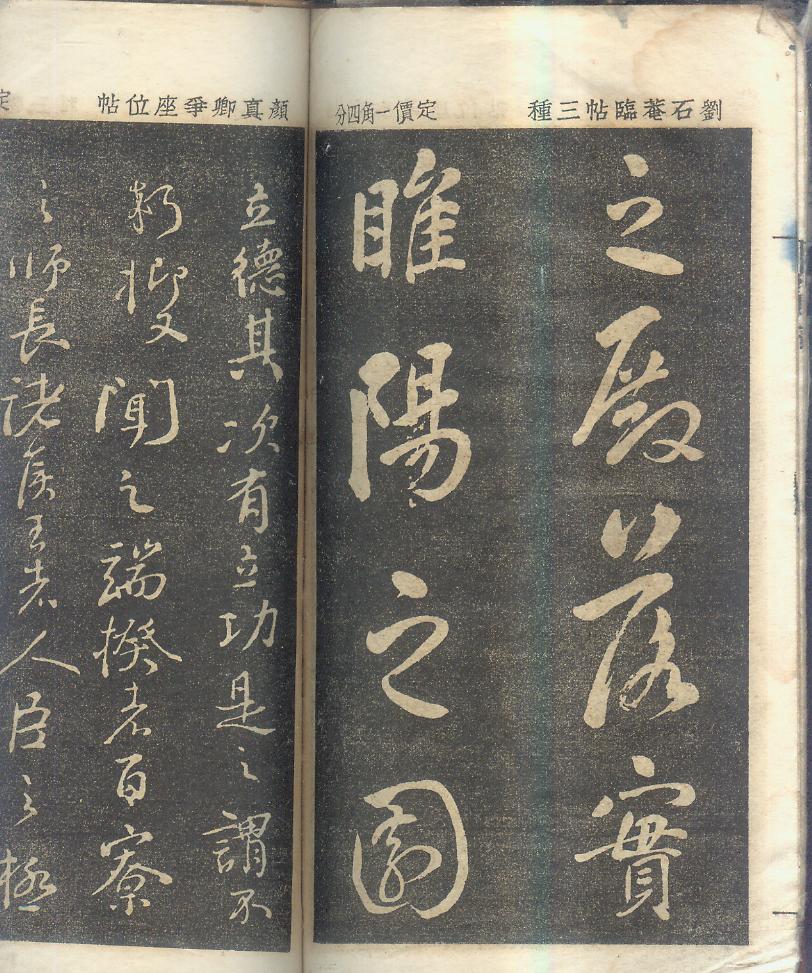 劉石菴臨帖三種
定價一角四分
之殿落實
睢陽之園
顏真卿爭座位帖
定
立德其次有立功是之謂不
朽抑又聞之端揆者百寮
之師長諸侯王者人臣之極